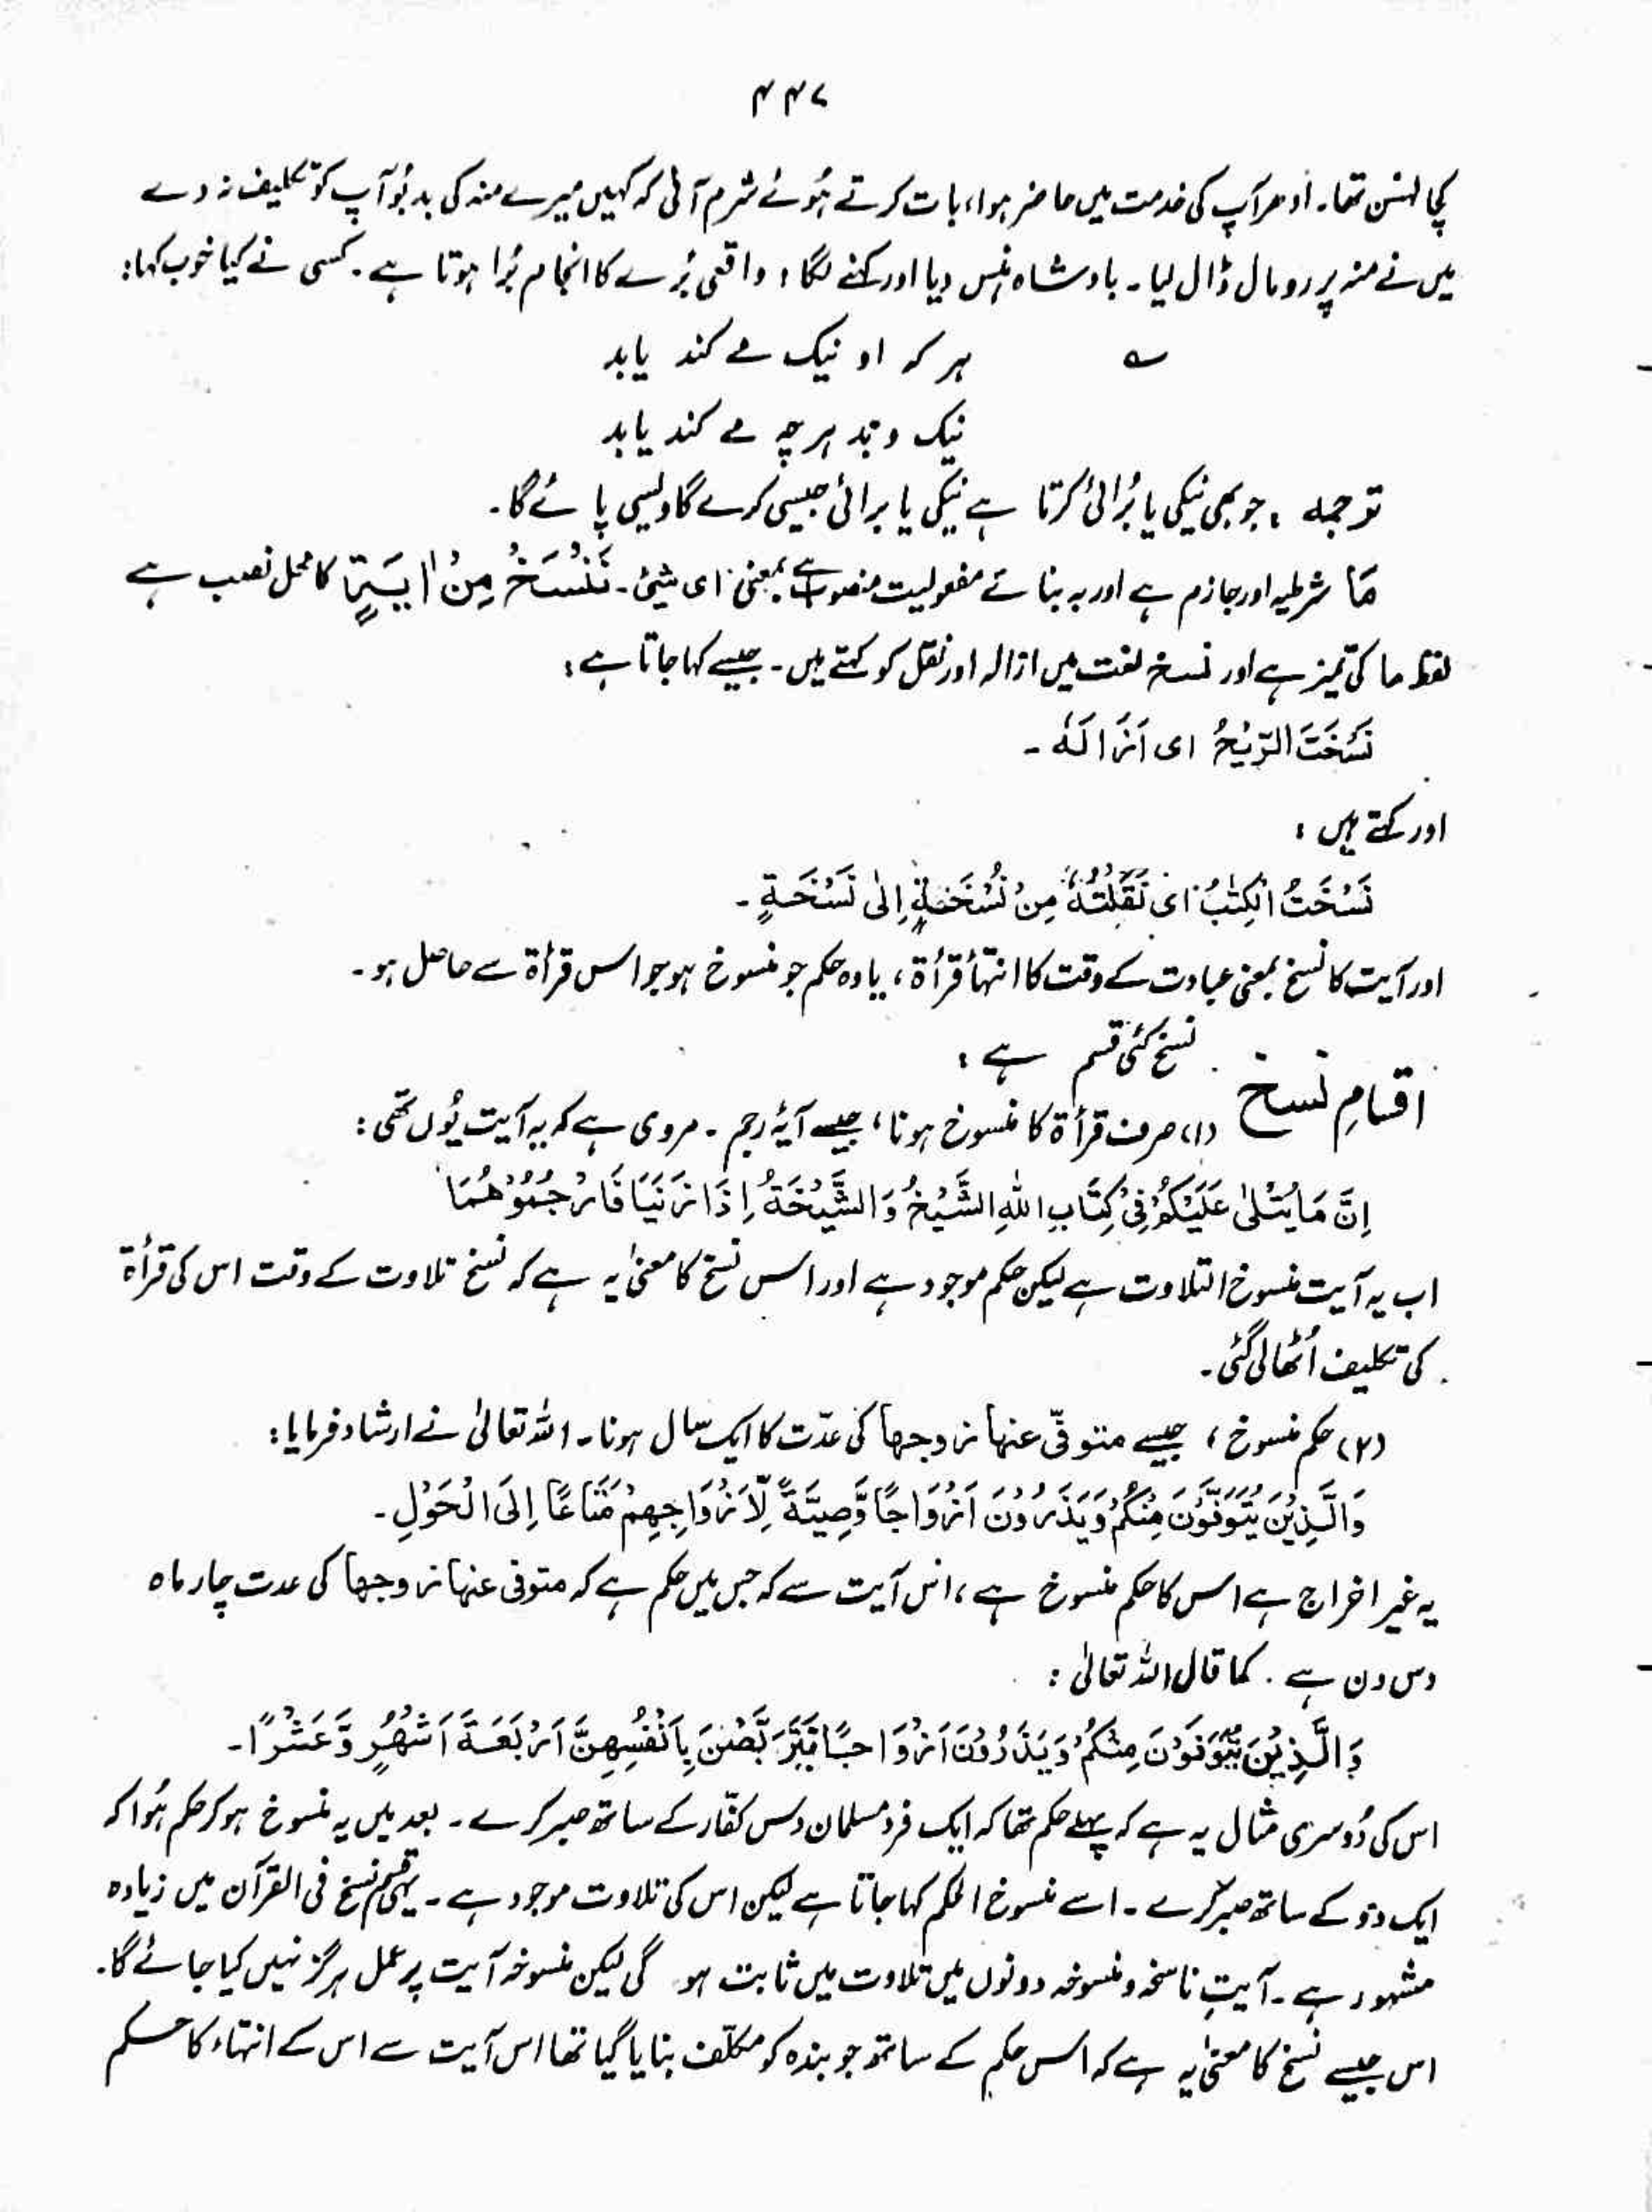 ۴۴۷
کچا لہسن تھا۔ اُدھر آپ کی خدمت میں حاضر ہوا، بات کرتے ہُوئے شرم آئی کہ کہیں میرے منہ کی بدبُو آپ کو تکلیف نہ دے
میں نے منہ پر رومال ڈال لیا۔ بادشاہ ہنس دیا اور کہنے لگا: واقعی بُرے کا انجام بُرا ہوتا ہے۔ کسی نے کیا خوب کہا:
؎ ہر کہ او نیک مے کند یابد
نیک و بد ہر چہ مے کند یابد
ترجمہ: جو بھی نیکی یا بُرائی کرتا ہے نیکی یا برائی جیسی کرے گا ویسی پائے گا۔
مَا شرطیہ اور جازم ہے اور بہ بنائے مفعولیت منصوب ہے بمعنیٰ ای شیئ۔ نَنْسَخْ مِنْ اٰیَةٍ کا محل نصب ہے
لفظ ما کی تمیز ہے اور نسخ لغت میں ازالہ اور نقل کو کہتے ہیں۔ جیسے کہا جاتا ہے:
نَسَخَتَ الرِّیْحُ ای اَزَالَهٗ۔
اور کہتے ہیں:
نَسَخْتُ الْکِتٰبُ اَیْ نَقَلْتُهٗ مِنْ نُسْخَةٍ اِلٰی نَسْخَةٍ۔
اور آیت کا نسخ بمعنی عبادت کے وقت کا انتہأ قرأۃ، یا وہ حکم جو منسوخ ہو جو اس قرأۃ سے حاصل ہو۔
نسخ کئی قسم ہے:
اقسامِ نسخ (۱) صرف قرأۃ کا منسوخ ہونا، جیسے آیۂ رجم۔ مروی ہے کہ یہ آیت یُوں تھی:
اِنَّ مَا یُتْلٰی عَلَیْکُمْ فِیْ کِتَابِ اللّٰهِ الشَّیْخُ وَالشَّیْخَةُ اِذَا زَنَیَا فَارْجُمُوْهُمَا
اب یہ آیت منسوخ التلاوت ہے لیکن حکم موجود ہے اور اس نسخ کا معنیٰ یہ ہے کہ نسخ تلاوت کے وقت اس کی قرأۃ
کی تکلیف اُٹھالی گئی۔
(۲) حکم منسوخ، جیسے متوفّی عنہا زوجہا کی عدّت کا ایک سال ہونا۔ اللہ تعالیٰ نے ارشاد فرمایا:
وَالَّذِیْنَ یُتَوَفَّوْنَ مِنْکُمْ وَیَذَرُوْنَ اَزْوَاجًا وَّصِیَّةً لِّاَزْوَاجِهِمْ مَّتَاعًا اِلَی الْحَوْلِ۔
یہ غیر اخراج ہے اس کا حکم منسوخ ہے، اس آیت سے کہ جس میں حکم ہے کہ متوفی عنہا زوجہا کی عدت چار ماہ
دس دن ہے۔ کما قال اللہ تعالیٰ:
وَالَّذِیْنَ یُتَوَفَّوْنَ مِنْکُمْ وَیَذَرُوْنَ اَزْوَاجًا یَّتَرَبَّصْنَ بِاَنْفُسِهِنَّ اَرْبَعَةَ اَشْهُرٍ وَّعَشْرًا۔
اس کی دُوسری مثال یہ ہے کہ پہلے حکم تھا کہ ایک فرد مسلمان دس کفّار کے ساتھ صبر کرے۔ بعد میں یہ منسوخ ہو کر حکم ہُوا کہ
ایک دو کے ساتھ صبر کرے۔ اسے منسوخ الحکم کہا جاتا ہے لیکن اس کی تلاوت موجود ہے۔ یہی قسم نسخ فی القرآن میں زیادہ
مشہور ہے۔ آیتِ ناسخہ و منسوخہ دونوں میں تلاوت میں ثابت ہو گی لیکن منسوخہ آیت پر عمل ہرگز نہیں کیا جائے گا۔
اس جیسے نسخ کا معنیٰ یہ ہے کہ اس حکم کے ساتھ جو بندہ کو مکلّف بنایا گیا تھا اس آیت سے اس کے انتہاء کا حکم